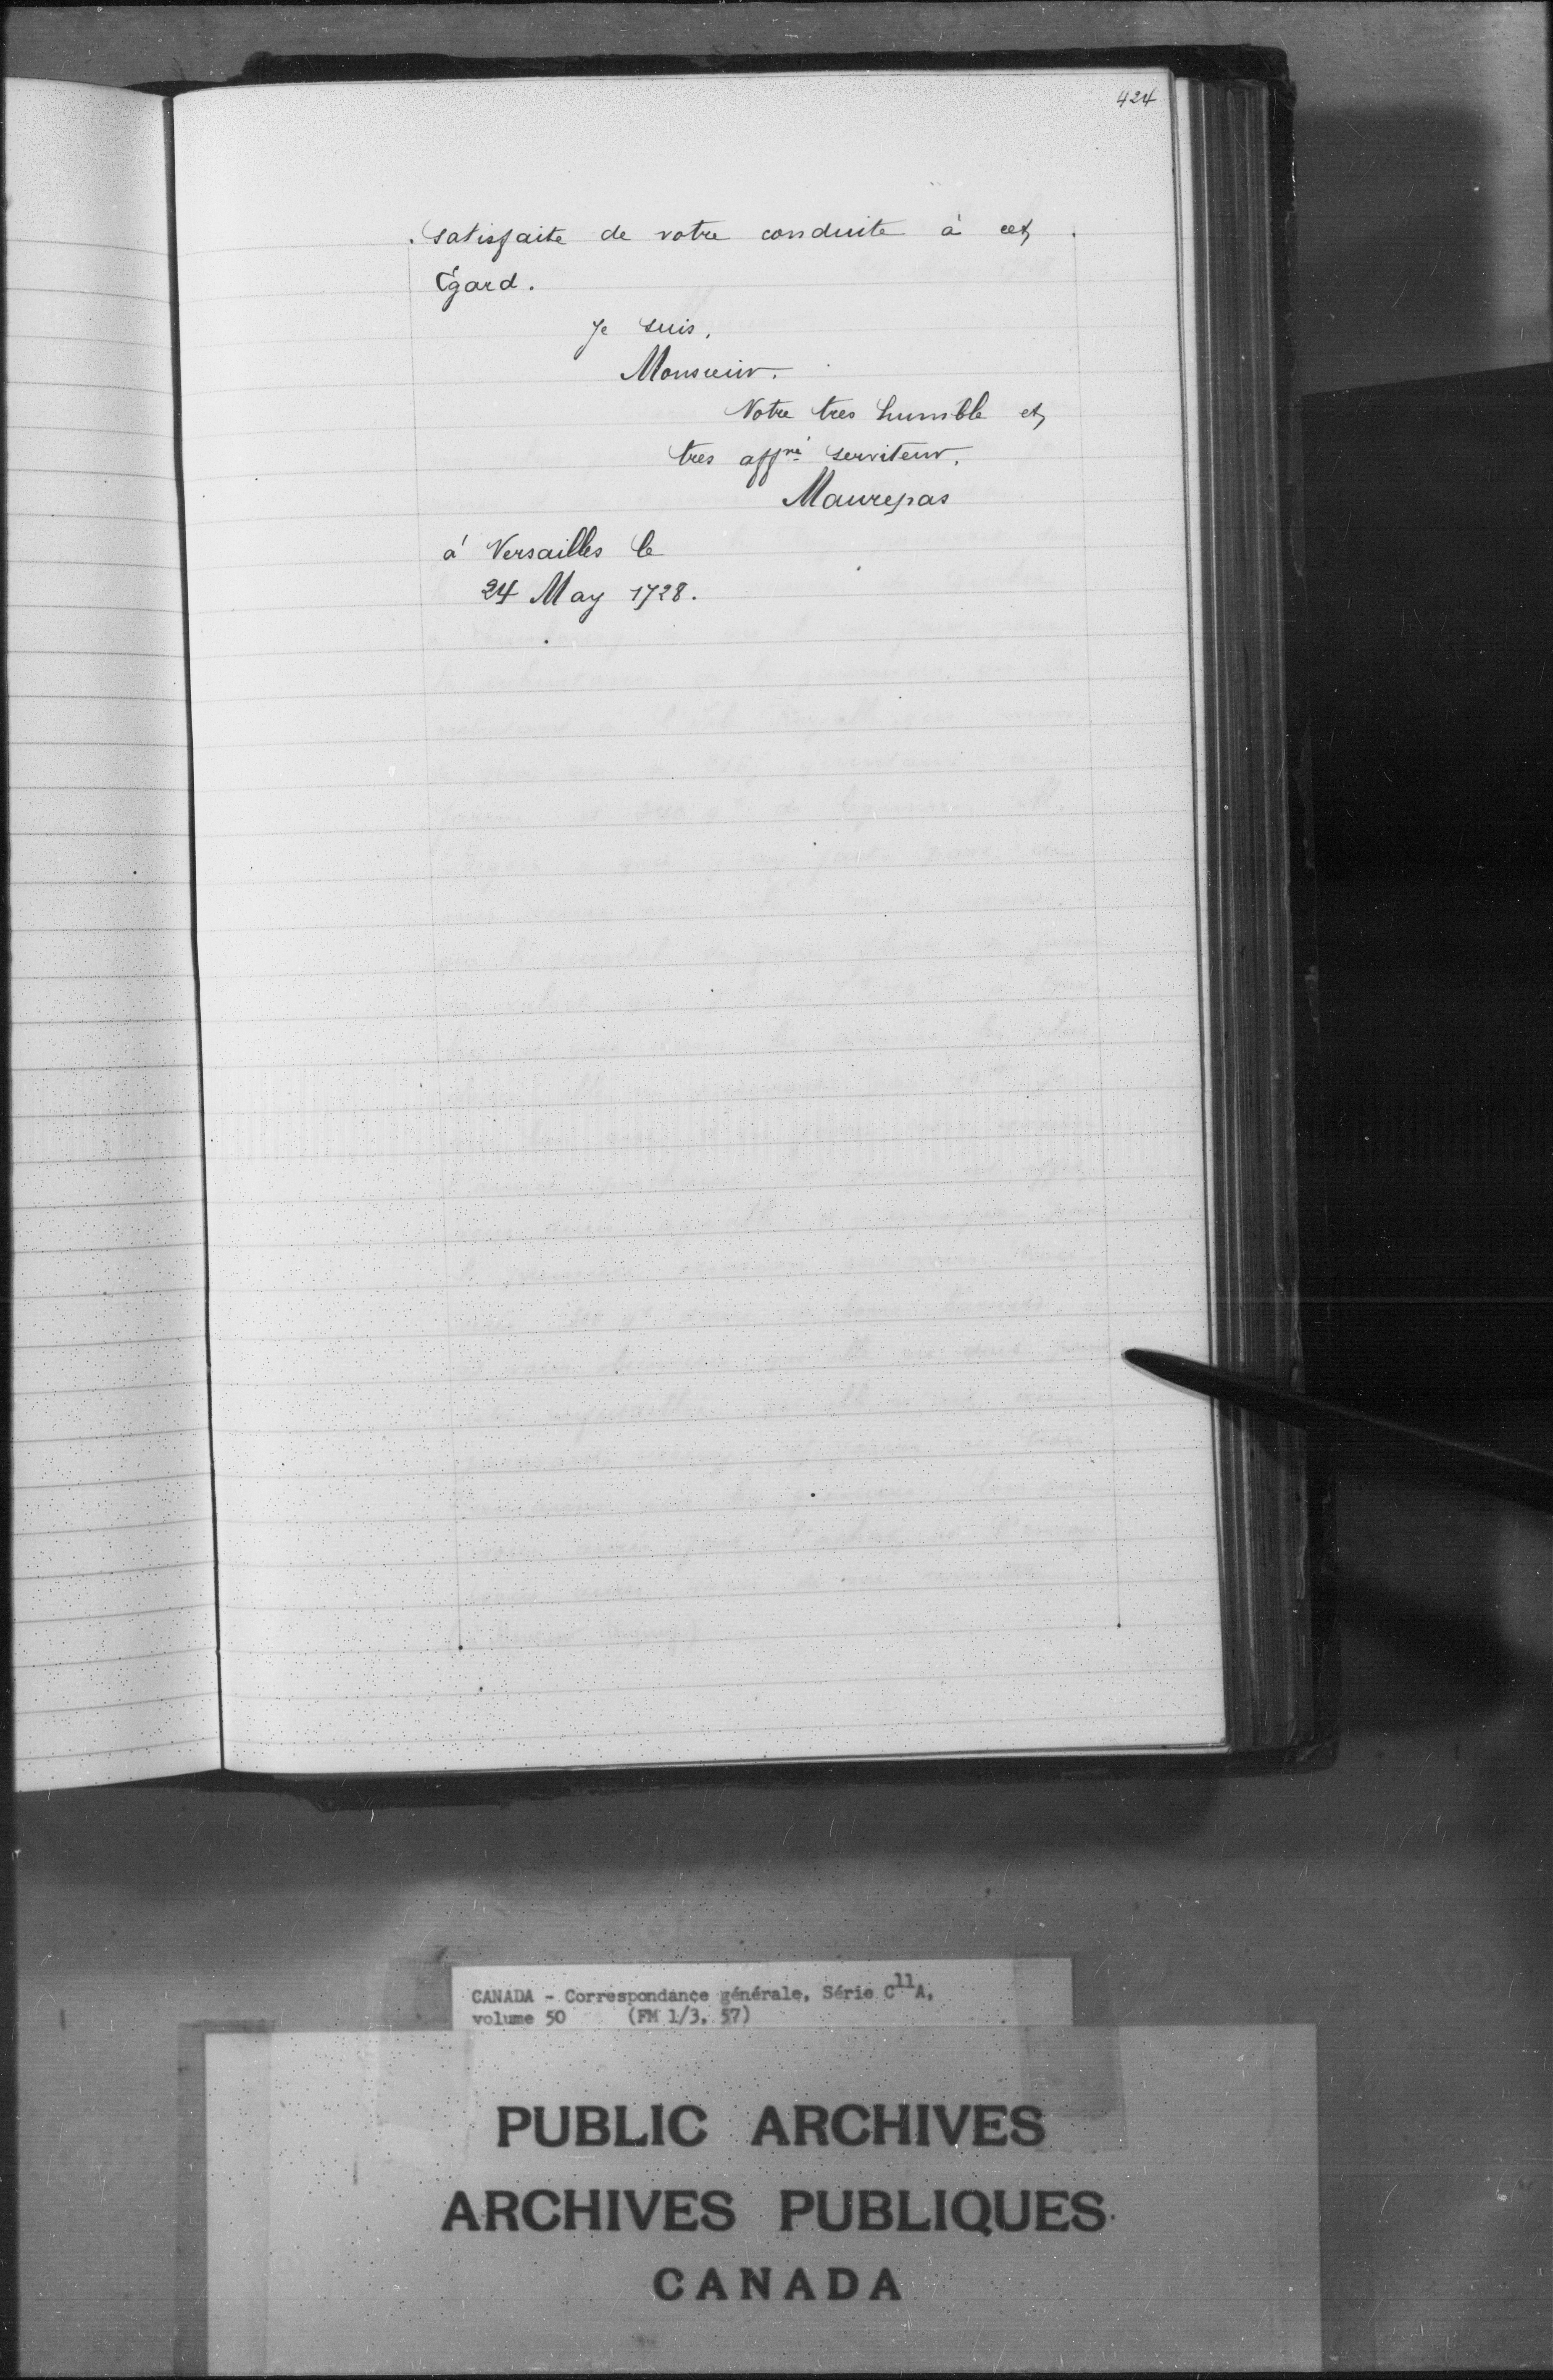 424
satisfaite de votre conduite à cet
Égard.
Je suis,
Monsieur.
Votre tres humble et
tres affné serviteur,
Maurepas
à Versailles le
24 May 1728.
CANADA - Correspondance générale, Série C11A,
volume 50 (FM 1/3, 57)
PUBLIC ARCHIVES
ARCHIVES PUBLIQUES
CANADA